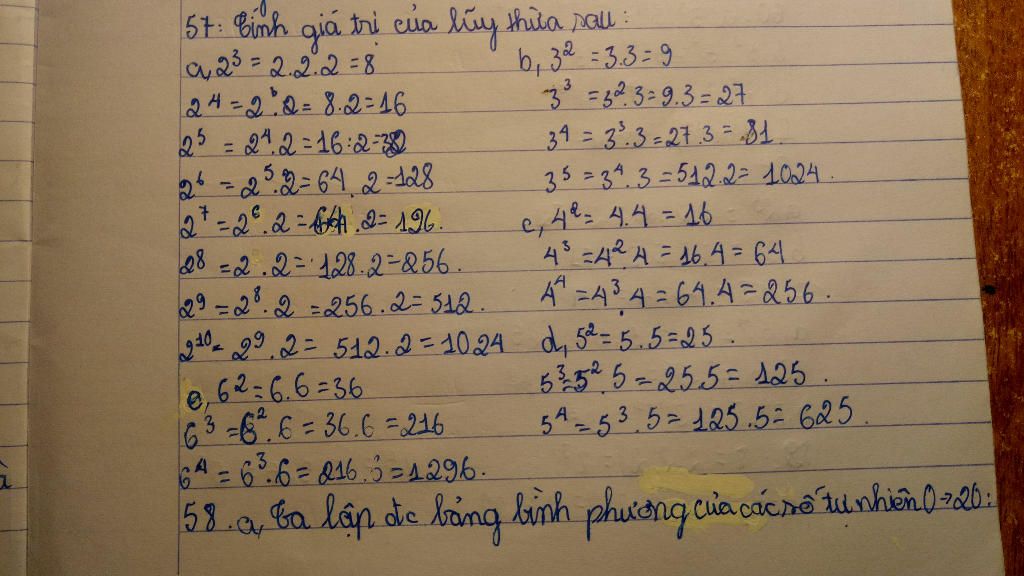 57: Tính giá trị của lũy thừa sau:
a, 2³ = 2.2.2 = 8
2⁴ = 2³.2 = 8.2 = 16
2⁵ = 2⁴.2 = 16:2 = 32
2⁶ = 2⁵.2 = 64.2 = 128
2⁷ = 2⁶.2 = 64.2 = 196.
2⁸ = 2 .2 = 128.2 = 256.
2⁹ = 2⁸.2 = 256.2 = 512.
2¹⁰ = 2⁹.2 = 512.2 = 1024
e, 6² = 6.6 = 36
6³ = 6².6 = 36.6 = 216
6⁴ = 6³.6 = 216. = 1296.
b, 3² = 3.3 = 9
3³ = 3².3 = 9.3 = 27
3⁴ = 3³.3 = 27.3 = 81.
3⁵ = 3⁴.3 = 512.2 = 1024.
c, 4² = 4.4 = 16
4³ = 4².4 = 16.4 = 64
4⁴ = 4³.4 = 64.4 = 256.
d, 5² = 5.5 = 25.
5³ = 5².5 = 25.5 = 125.
5⁴ = 5³.5 = 125.5 = 625.
58. a, Ta lập đc bảng bình phương của các số tự nhiên 0→20: